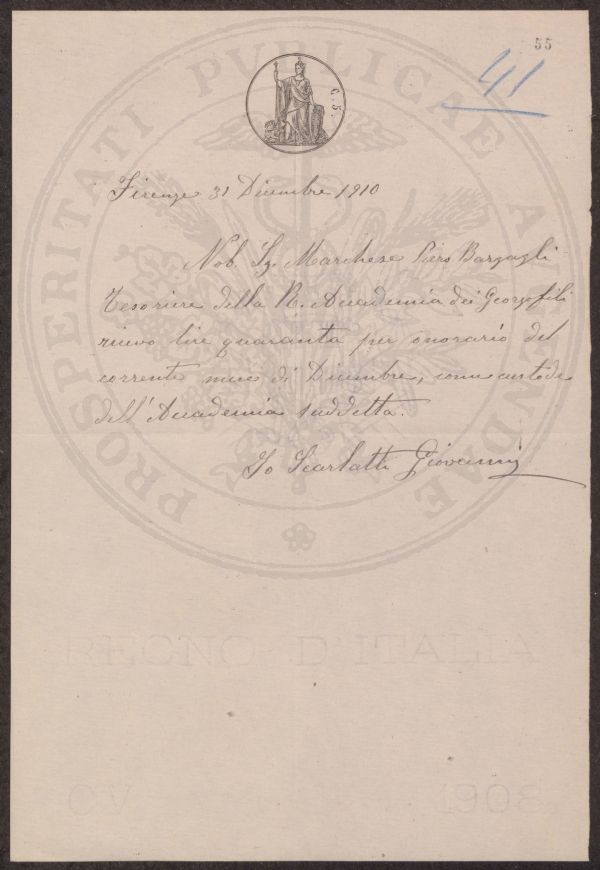 55
41
C. 5.
Firenze 31 Dicembre 1910
Nob. Sg. Marchese Piero Bargagli
Tesoriere della R. Accademia dei Georgofili
ricevo lire quaranta per onorario del
corrente mese di Dicembre, come custode
dell'Accademia suddetta.
Io Scarlatti Giovanni
PROSPERITATI PVBLICAE AVGENDAE
REGNO D'ITALIA
CV 1908